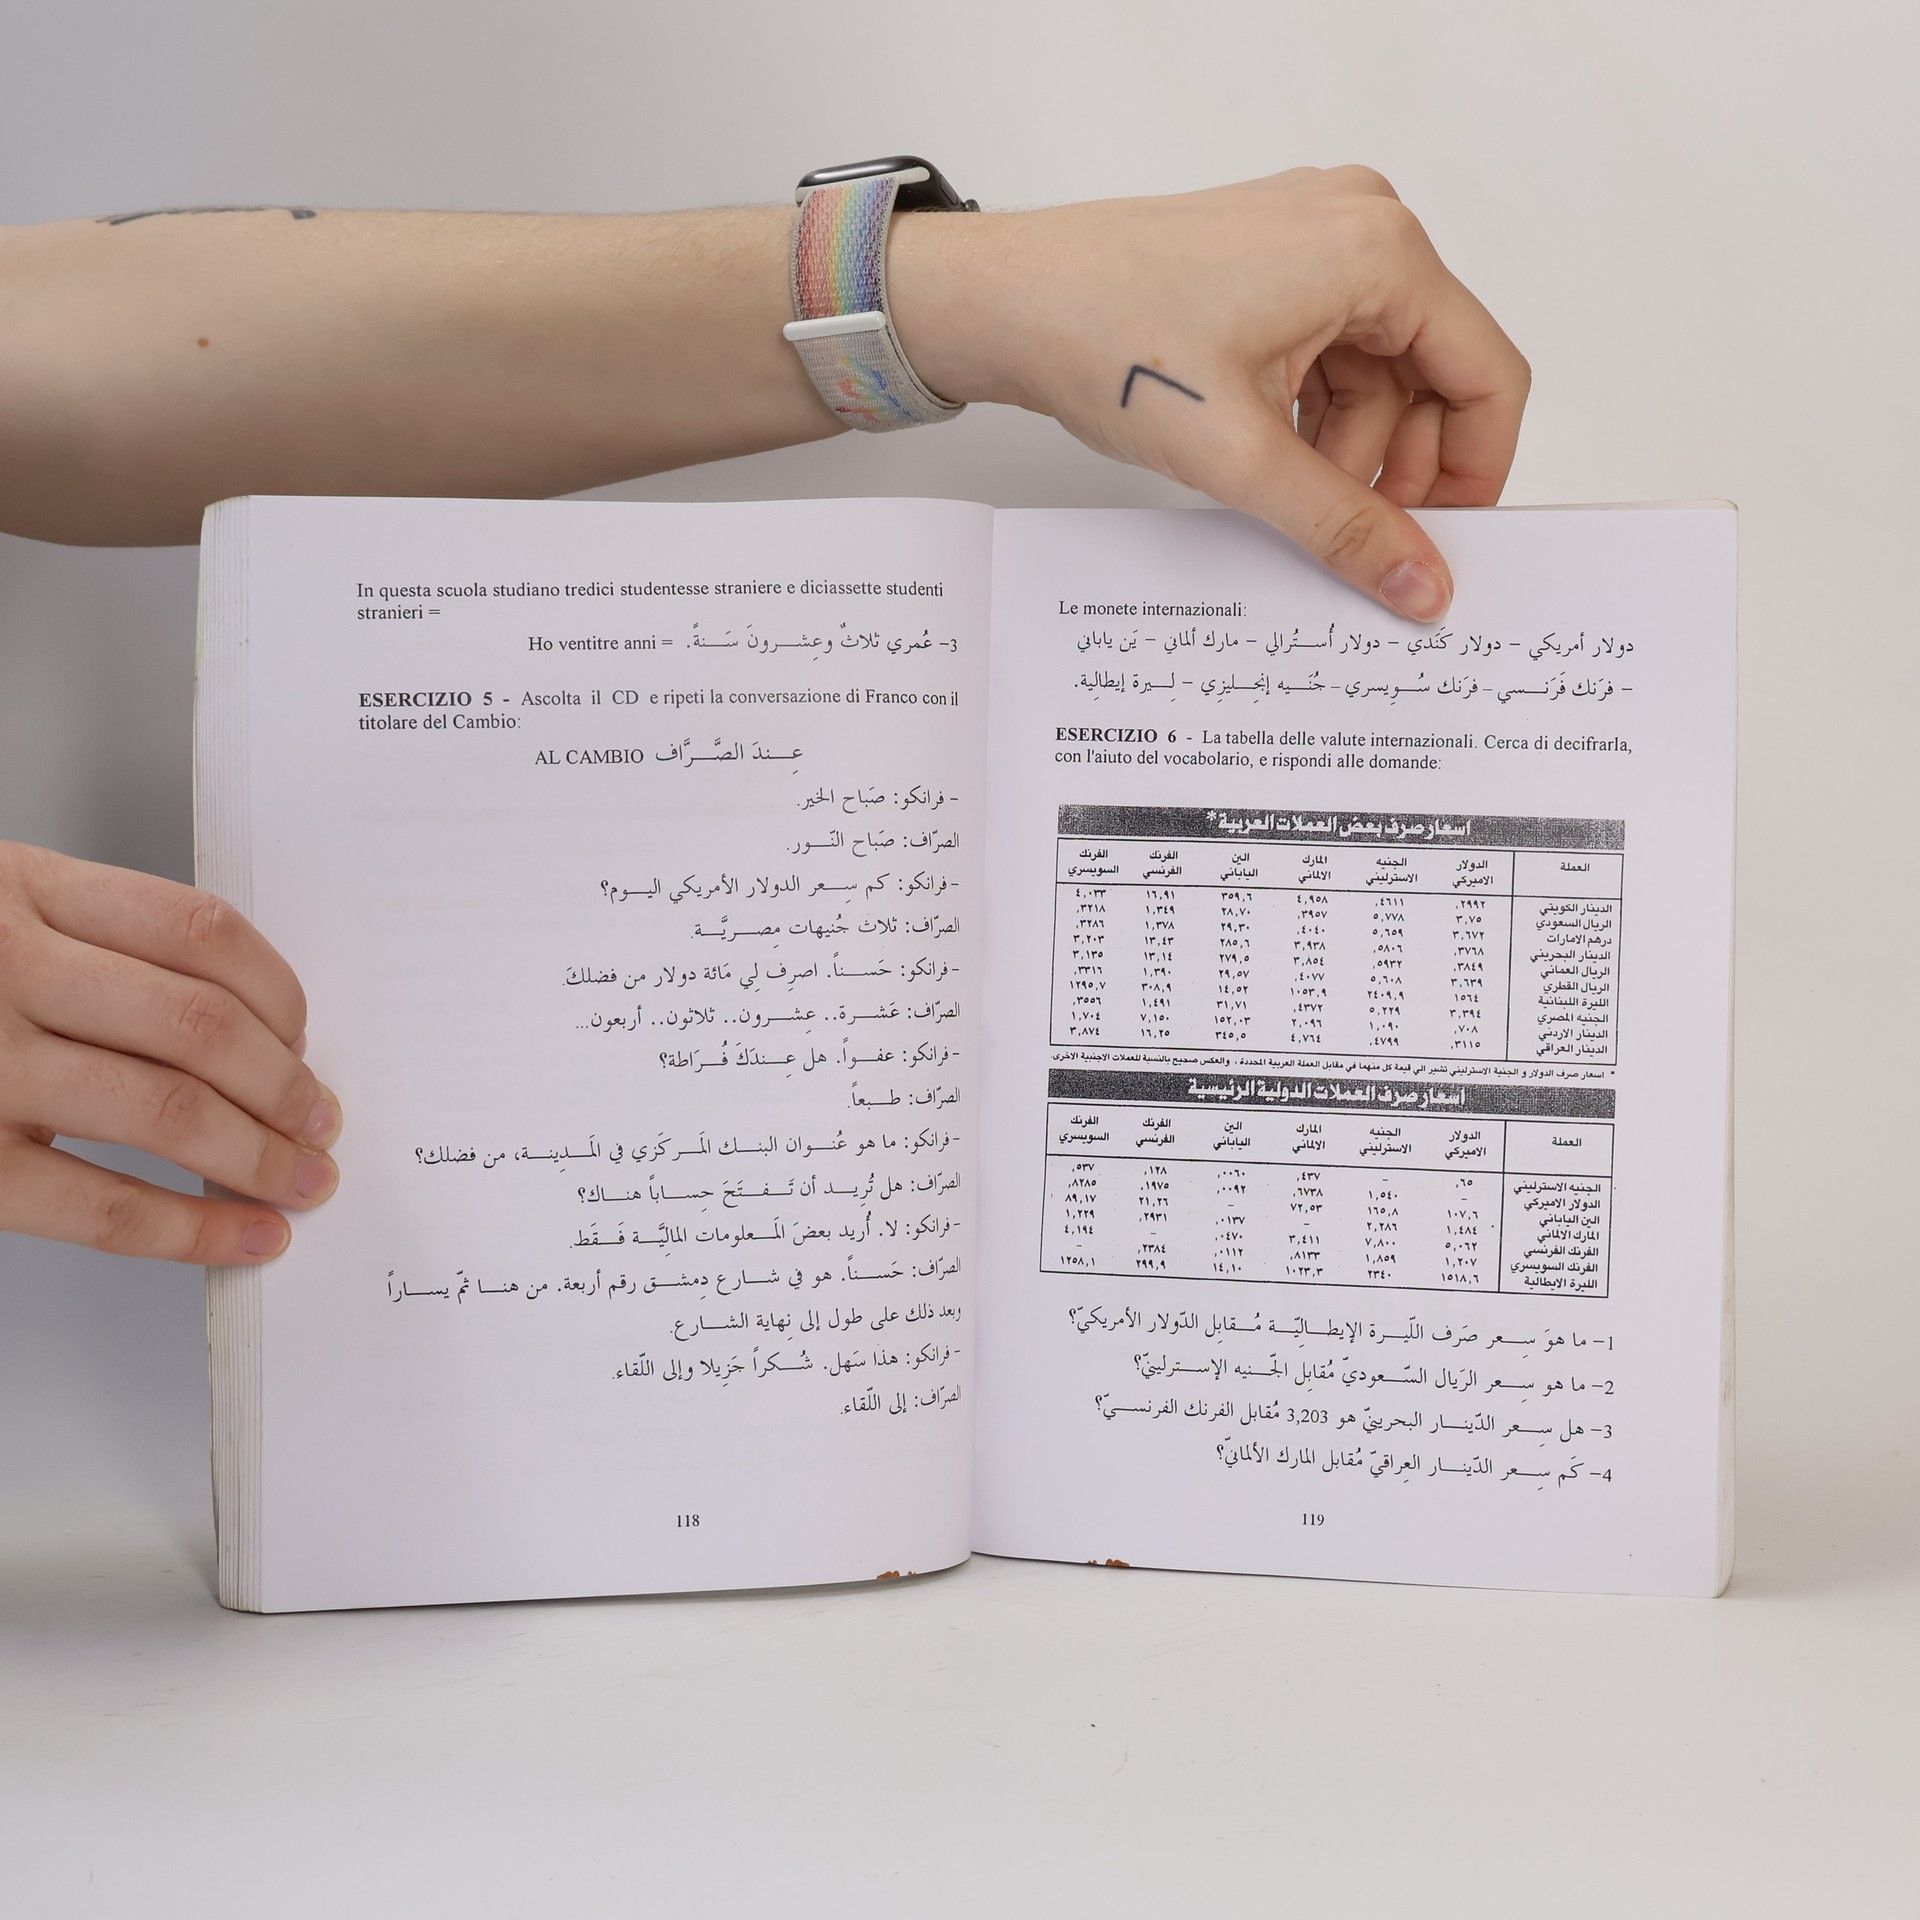 In questa scuola studiano tredici studentesse straniere e diciassette studenti
stranieri =
3- عُمري ثلاثٌ وعِشرونَ سَنةً. = Ho ventitre anni
ESERCIZIO 5 - Ascolta il CD e ripeti la conversazione di Franco con il
titolare del Cambio:
AL CAMBIO عِندَ الصَّرَّاف
- فرانكو: صَباح الخير.
الصرّاف: صَباح النّور.
-فرانكو: كم سِعر الدولار الأمريكي اليوم؟
الصرّاف: ثلاث جُنيهات مِصريَّة.
-فرانكو: حَسناً. اصرِف لِي مَائة دولار من فضلكَ.
الصرّاف: عَشرة.. عِشرون.. ثلاثون.. أربعون...
-فرانكو: عفواً. هل عِندَكَ فُرَاطة؟
الصرّاف: طبعاً.
-فرانكو: ما هو عُنوان البنك المَركَزي في المَدِينة، من فضلك؟
الصرّاف: هل تُرِيد أن تَفتَحَ حِساباً هناك؟
-فرانكو: لا. أُريد بعضَ المَعلومات المالِيَّة فَقَط.
الصرّاف: حَسناً. هو في شارع دِمشق رقم أربعة. من هنا ثمّ يساراً
وبعد ذلك على طول إلى نِهاية الشارع.
-فرانكو: هذا سَهل. شُكراً جَزِيلا وإلى اللّقاء.
الصرّاف: إلى اللّقاء.
118
Le monete internazionali:
دولار أمريكي - دولار كَنَدي - دولار أُستُرالي - مارك ألماني - يَن ياباني
- فرَنك فَرَنسي - فرَنك سُويسري - جُنَيه إنجِليزي - لِيرة إيطالِية.
ESERCIZIO 6 - La tabella delle valute internazionali. Cerca di decifrarla,
con l'aiuto del vocabolario, e rispondi alle domande:
اسعار صرف بعض العملات العربية*
العملة الدولار الاميركي الجنيه الاسترليني المارك الالماني الين الياباني الفرنك الفرنسي الفرنك السويسري
الدينار الكويتي ,٢٩٩٢ ,٤٦١١ ٤,٩٥٨ ٣٥٩,٦ ١٦,٩١ ٤,٠٣٣
الريال السعودي ٣,٧٥ ٥,٧٧٨ ,٣٩٥٧ ٢٨,٧٠ ١,٣٤٩ ,٣٢١٨
درهم الامارات ٣,٦٧٢ ٥,٦٥٩ ,٤٠٤٠ ٢٩,٣٠ ١,٣٧٨ ,٣٢٨٦
الدينار البحريني ,٣٧٦٨ ,٥٨٠٦ ٣,٩٣٨ ٢٨٥,٦ ١٣,٤٣ ٣,٢٠٣
الريال العماني ,٣٨٤٩ ,٥٩٣٢ ٣,٨٥٤ ٢٧٩,٥ ١٣,١٤ ٣,١٣٥
الريال القطري ٣,٦٣٩ ٥,٦٠٨ ,٤٠٧٧ ٢٩,٥٧ ١,٣٩٠ ,٣٣١٦
الليرة اللبنانية ١٥٦٤ ٢٤٠٩,٩ ١٠٥٣,٩ ١٤,٥٢ ٣٠٨,٩ ١٢٩٥,٧
الجنيه المصري ٣,٣٩٤ ٥,٢٢٩ ,٤٣٧٢ ٣١,٧١ ١,٤٩١ ,٣٥٥٦
الدينار الاردني ,٧٠٨ ١,٠٩٠ ٢,٠٩٦ ١٥٢,٠٣ ٧,١٥٠ ١,٧٠٤
الدينار العراقي ,٣١١٥ ,٤٧٩٩ ٤,٧٦٤ ٣٤٥,٥ ١٦,٢٥ ٣,٨٧٤
* اسعار صرف الدولار و الجنية الاسترليني تشير الي قيمة كل منهما في مقابل العملة العربية المحددة ، والعكس صحيح بالنسبة للعملات الاجنبية الاخرى.
اسعار صرف العملات الدولية الرئيسية
العملة الدولار الاميركي الجنيه الاسترليني المارك الالماني الين الياباني الفرنك الفرنسي الفرنك السويسري
الجنيه الاسترليني ,٦٥ - ,٤٣٧ ,٠٠٦٠ ,١٢٨ ,٥٣٧
الدولار الاميركي - ١,٥٤٠ ,٦٧٣٨ ,٠٠٩٢ ,١٩٧٥ ,٨٢٨٥
الين الياباني ١٠٧,٦ ١٦٥,٨ ٧٢,٥٣ - ٢١,٢٦ ٨٩,١٧
المارك الالماني ١,٤٨٤ ٢,٢٨٦ - ,٠١٣٧ ,٢٩٣١ ١,٢٢٩
الفرنك الفرنسي ٥,٠٦٢ ٧,٨٠٠ ٣,٤١١ ,٠٤٧٠ - ٤,١٩٤
الفرنك السويسري ١,٢٠٧ ١,٨٥٩ ,٨١٣٣ ,٠١١٢ ,٢٣٨٤ -
الليرة الايطالية ١٥١٨,٦ ٢٣٤٠ ١٠٢٣,٣ ١٤,١٠ ٢٩٩,٩ ١٢٥٨,١
1- ما هوَ سِعر صَرف اللّيرة الإيطالِيّة مُقابِل الدّولار الأمريكيّ؟
2- ما هو سِعر الرَيال السّعوديّ مُقابِل الجّنيه الإسترلينيّ؟
3- هل سِعر الدّينار البحرينيّ هو 3,203 مُقابل الفرنك الفرنسيّ؟
4- كَم سِعر الدّينار العِراقيّ مُقابل المارك الألمانيّ؟
119